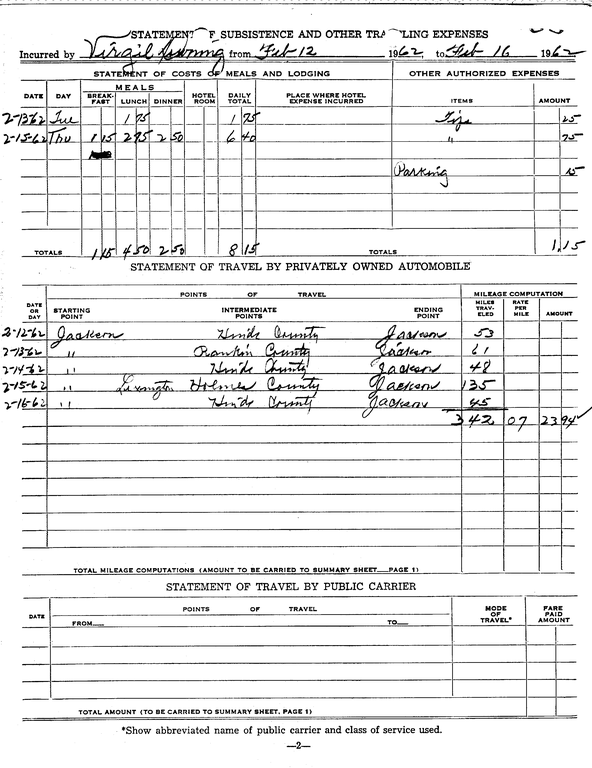 STATEMENT OF SUBSISTENCE AND OTHER TRAVELLING EXPENSES
Incurred by Virgil Downing from Feb 12 1962 to Feb 16 1962
STATEMENT OF COSTS OF MEALS AND LODGING OTHER AUTHORIZED EXPENSES
DATE DAY MEALS BREAK-FAST LUNCH DINNER HOTEL ROOM DAILY TOTAL PLACE WHERE HOTEL EXPENSE INCURRED ITEMS AMOUNT
2-13-62 Tue 1 75 1 75 Tips 25
2-15-62 Thu 1 15 2 75 2 50 6 40 " 75
Parking 15
TOTALS 1 15 4 50 2 50 8 15 TOTALS 1.15
STATEMENT OF TRAVEL BY PRIVATELY OWNED AUTOMOBILE
POINTS OF TRAVEL MILEAGE COMPUTATION
DATE OR DAY STARTING POINT INTERMEDIATE POINTS ENDING POINT MILES TRAV-ELED RATE PER MILE AMOUNT
2-12-62 Jackson Hinds County Jackson 53
2-13-62 " Rankin County Jackson 61
2-14-62 " Hinds County Jackson 48
2-15-62 " Lexington Holmes County Jackson 135
2-16-62 " Hinds County Jackson 45
342 07 23 94
TOTAL MILEAGE COMPUTATIONS (AMOUNT TO BE CARRIED TO SUMMARY SHEET PAGE 1)
STATEMENT OF TRAVEL BY PUBLIC CARRIER
DATE POINTS OF TRAVEL MODE OF TRAVEL* FARE PAID AMOUNT
FROM TO
TOTAL AMOUNT (TO BE CARRIED TO SUMMARY SHEET, PAGE 1)
*Show abbreviated name of public carrier and class of service used.
—2—